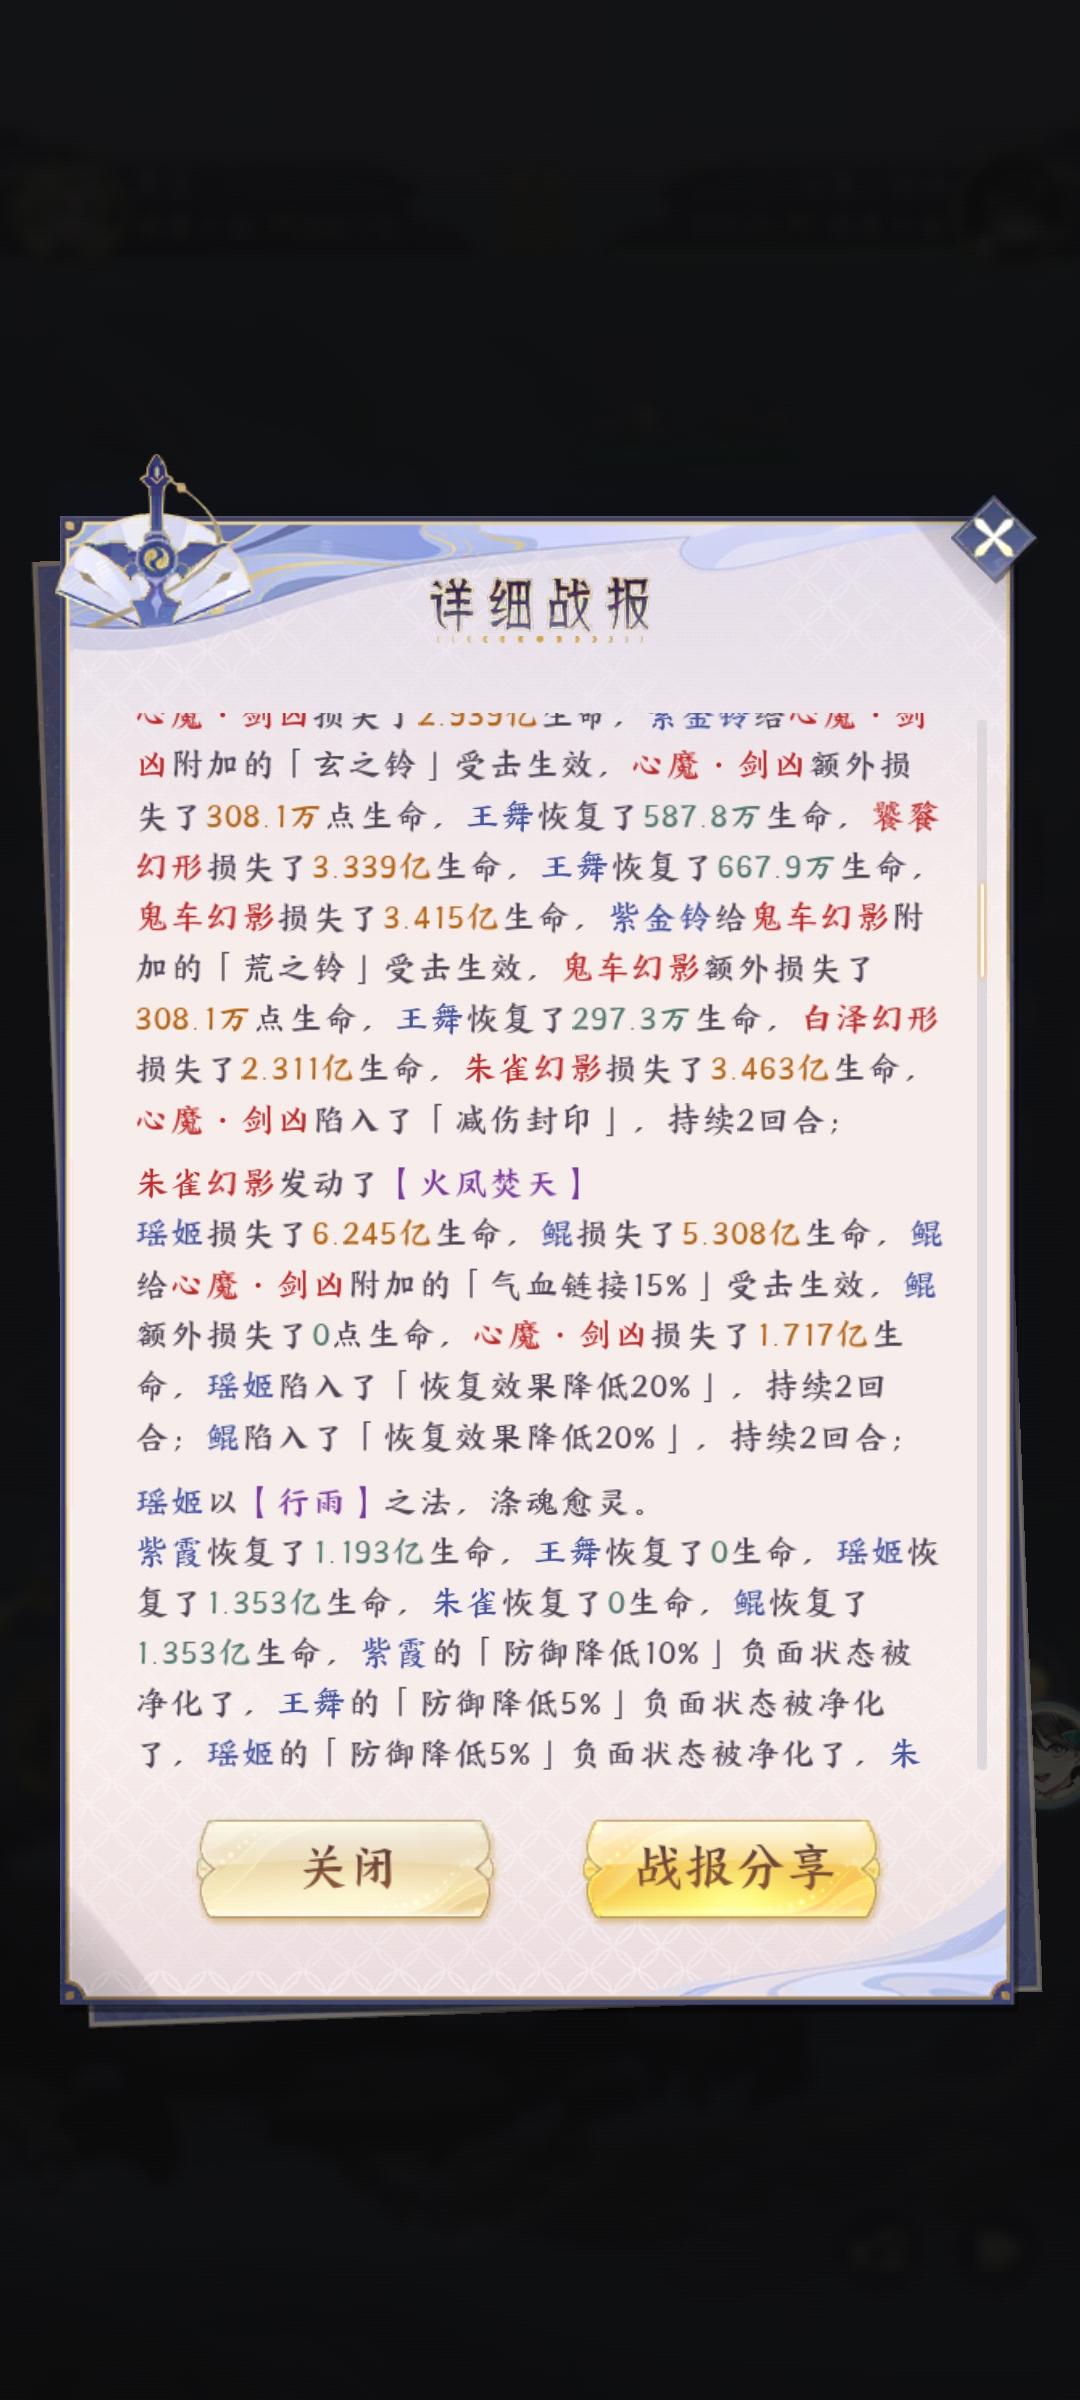 详细战报
心魔·剑凶损失了2.939亿生命，紫金铃给心魔·剑
凶附加的「玄之铃」受击生效，心魔·剑凶额外损
失了308.1万点生命，王舞恢复了587.8万生命，饕餮
幻形损失了3.339亿生命，王舞恢复了667.9万生命，
鬼车幻影损失了3.415亿生命，紫金铃给鬼车幻影附
加的「荒之铃」受击生效，鬼车幻影额外损失了
308.1万点生命，王舞恢复了297.3万生命，白泽幻形
损失了2.311亿生命，朱雀幻影损失了3.463亿生命，
心魔·剑凶陷入了「减伤封印」，持续2回合；
朱雀幻影发动了【火凤焚天】
瑶姬损失了6.245亿生命，鲲损失了5.308亿生命，鲲
给心魔·剑凶附加的「气血链接15%」受击生效，鲲
额外损失了0点生命，心魔·剑凶损失了1.717亿生
命，瑶姬陷入了「恢复效果降低20%」，持续2回
合；鲲陷入了「恢复效果降低20%」，持续2回合；
瑶姬以【行雨】之法，涤魂愈灵。
紫霞恢复了1.193亿生命，王舞恢复了0生命，瑶姬恢
复了1.353亿生命，朱雀恢复了0生命，鲲恢复了
1.353亿生命，紫霞的「防御降低10%」负面状态被
净化了，王舞的「防御降低5%」负面状态被净化
了，瑶姬的「防御降低5%」负面状态被净化了，朱
关闭
战报分享